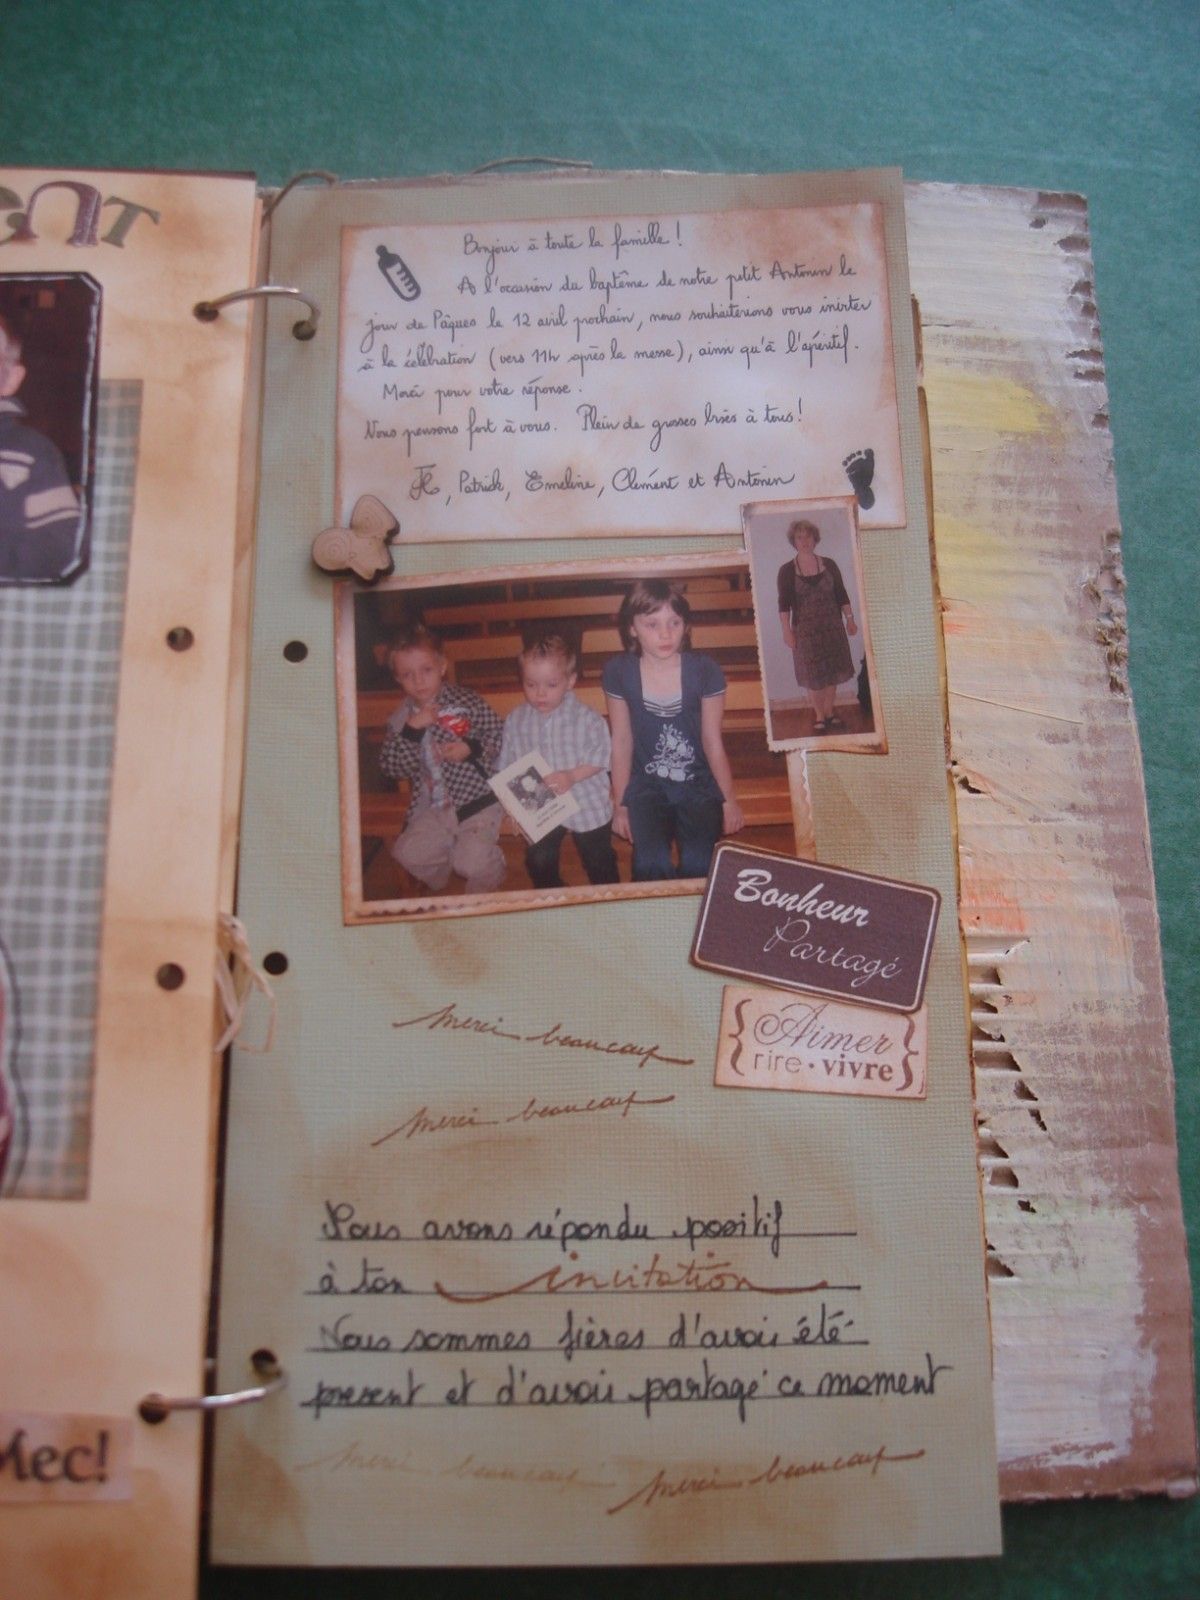 ENT
Bonjour à toute la famille !
A l'occasion du baptême de notre petit Antonin le
jour de Pâques le 12 avril prochain, nous souhaiterions vous inviter
à la célébration (vers 11h après la messe), ainsi qu'à l'apéritif.
Merci pour votre réponse.
Nous pensons fort à vous. Plein de grosses bises à tous !
, Patrick, Emeline, Clément et Antonin
Bonheur
Partagé
{Aimer
rire · vivre}
merci beaucoup
merci beaucoup
Nous avons répondu positif
à ton invitation
Nous sommes fières d'avoir été
present et d'avoir partagé ce moment
Mec!
merci beaucoup
merci beaucoup